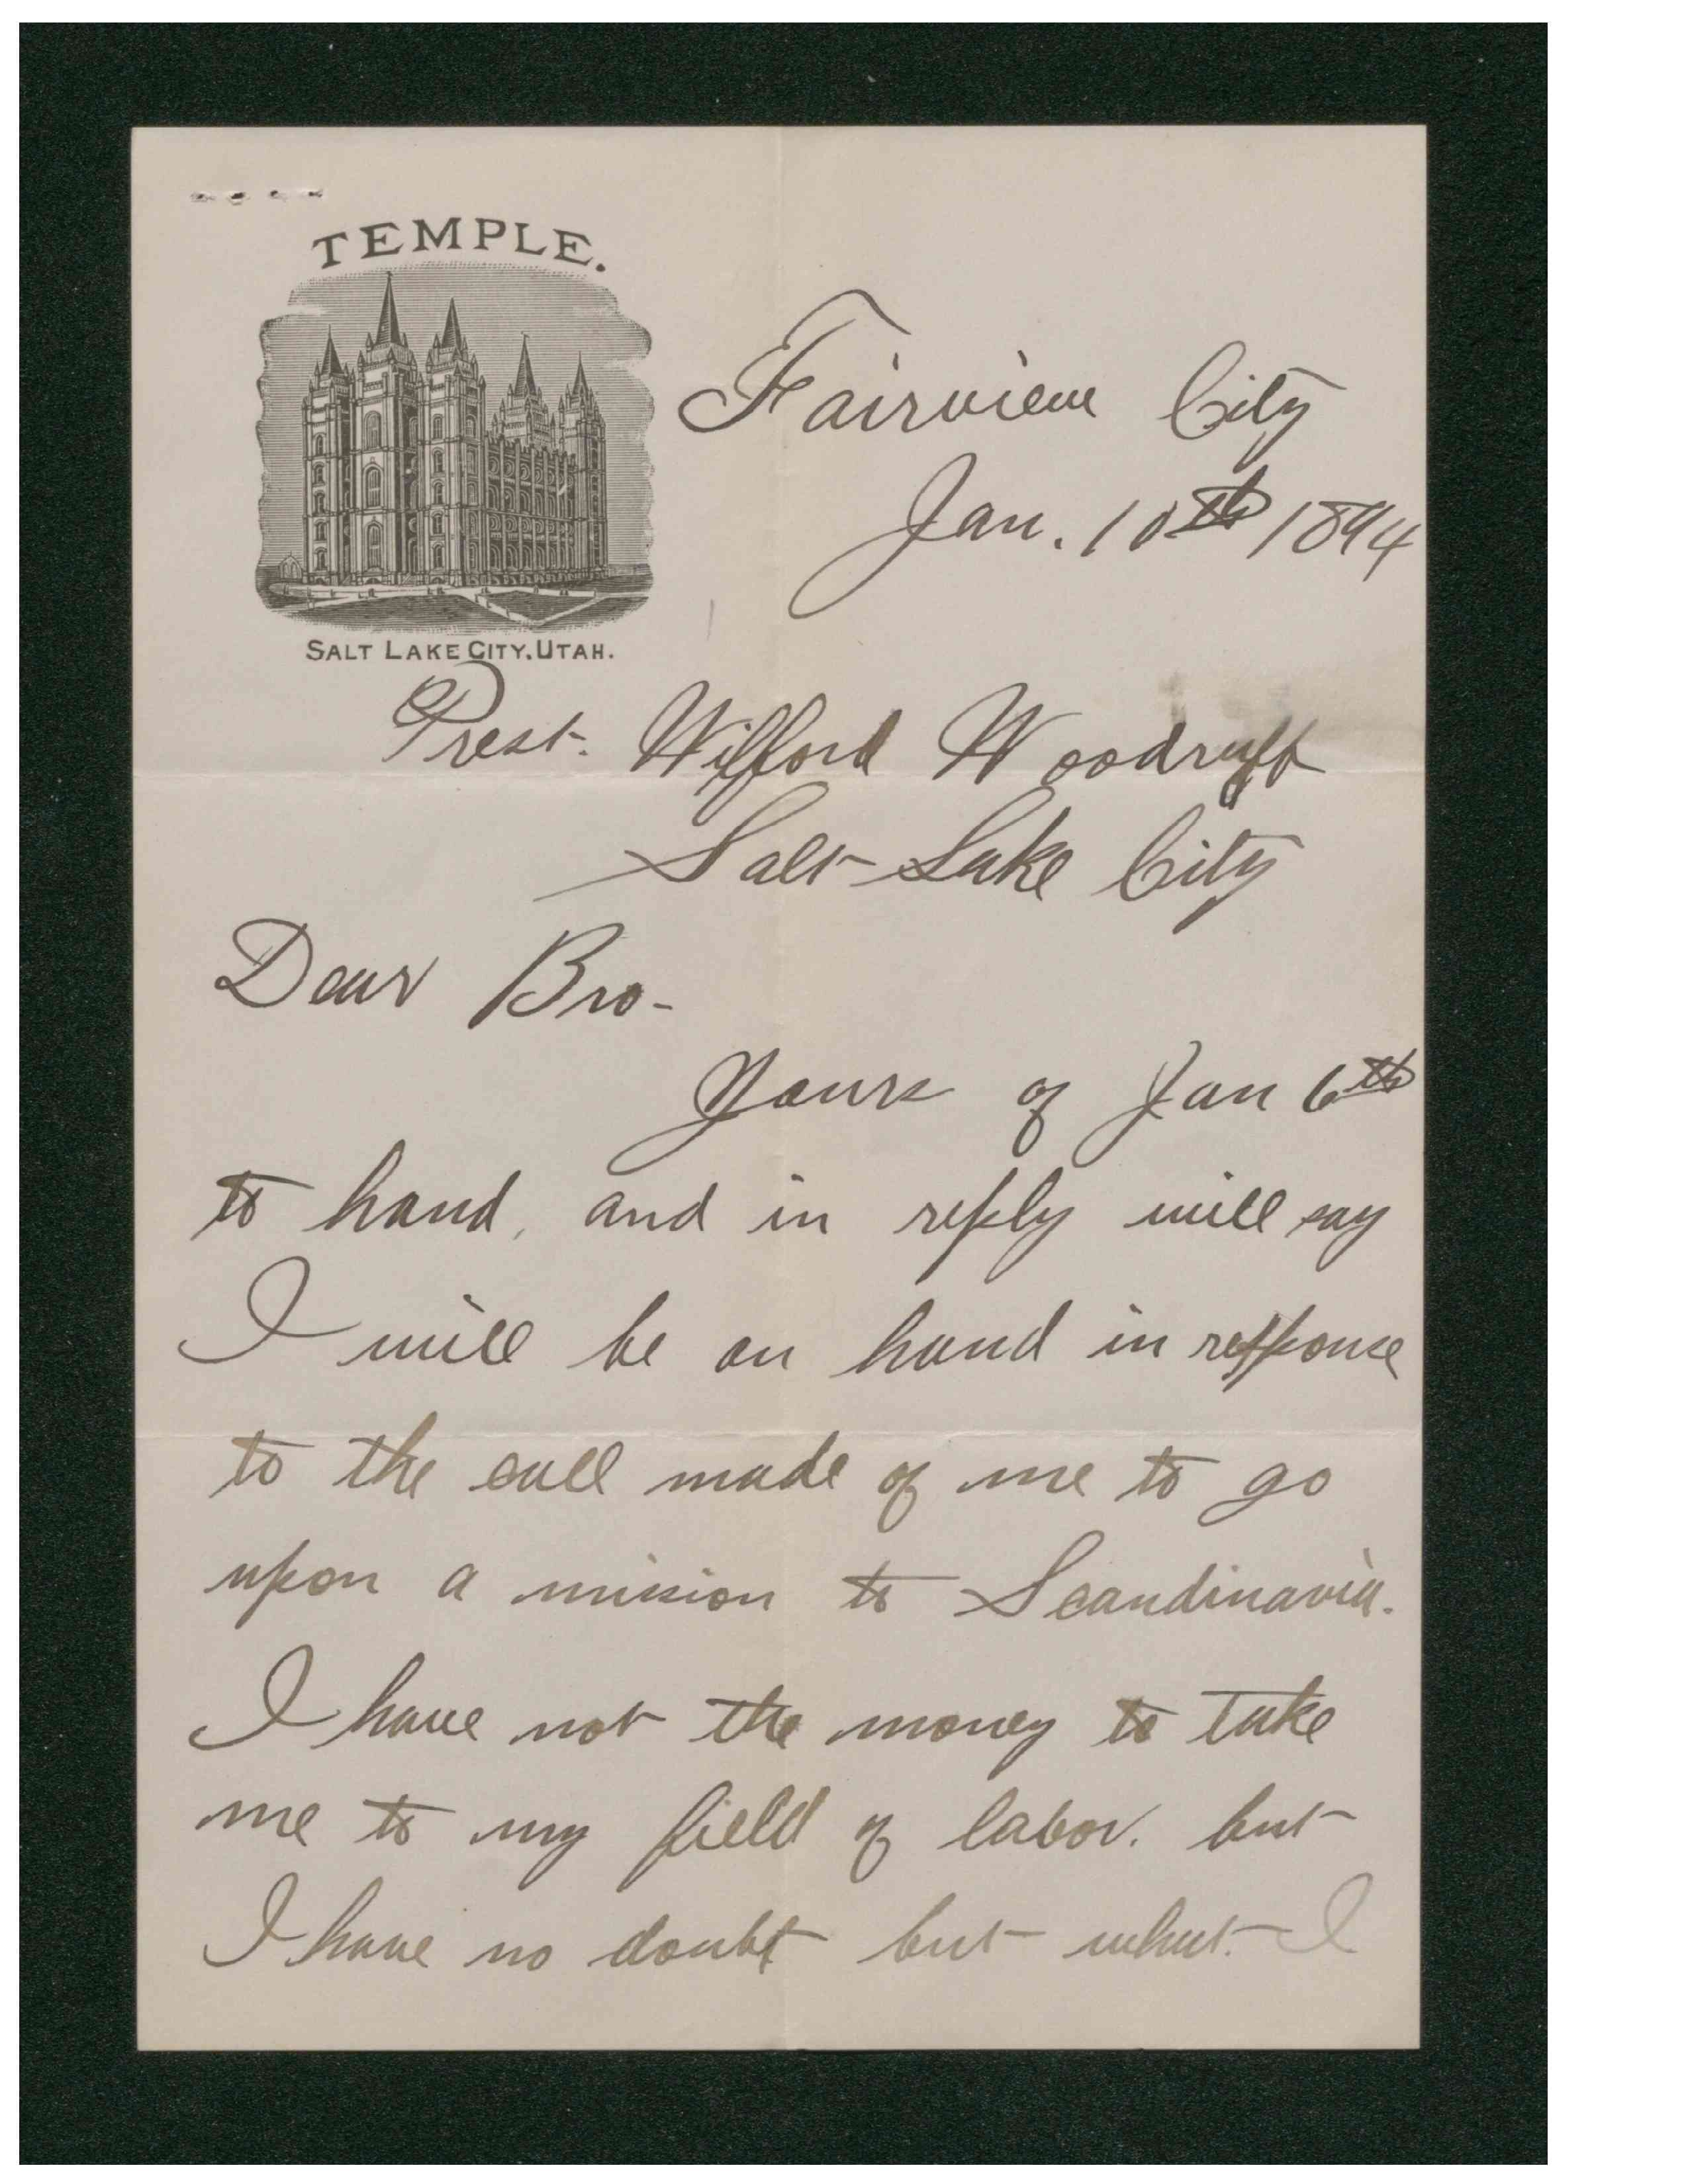 TEMPLE.
SALT LAKE CITY, UTAH.
Fairview City
Jan. 10th 1894
Prest. Wilford Woodruff
Salt Lake City
Dear Bro-
Yours of Jan 6th
to hand, and in reply will say
I will be on hand in response
to the call made of me to go
upon a mission to Scandinavia.
I have not the money to take
me to my field of labor. but
I have no doubt but what I